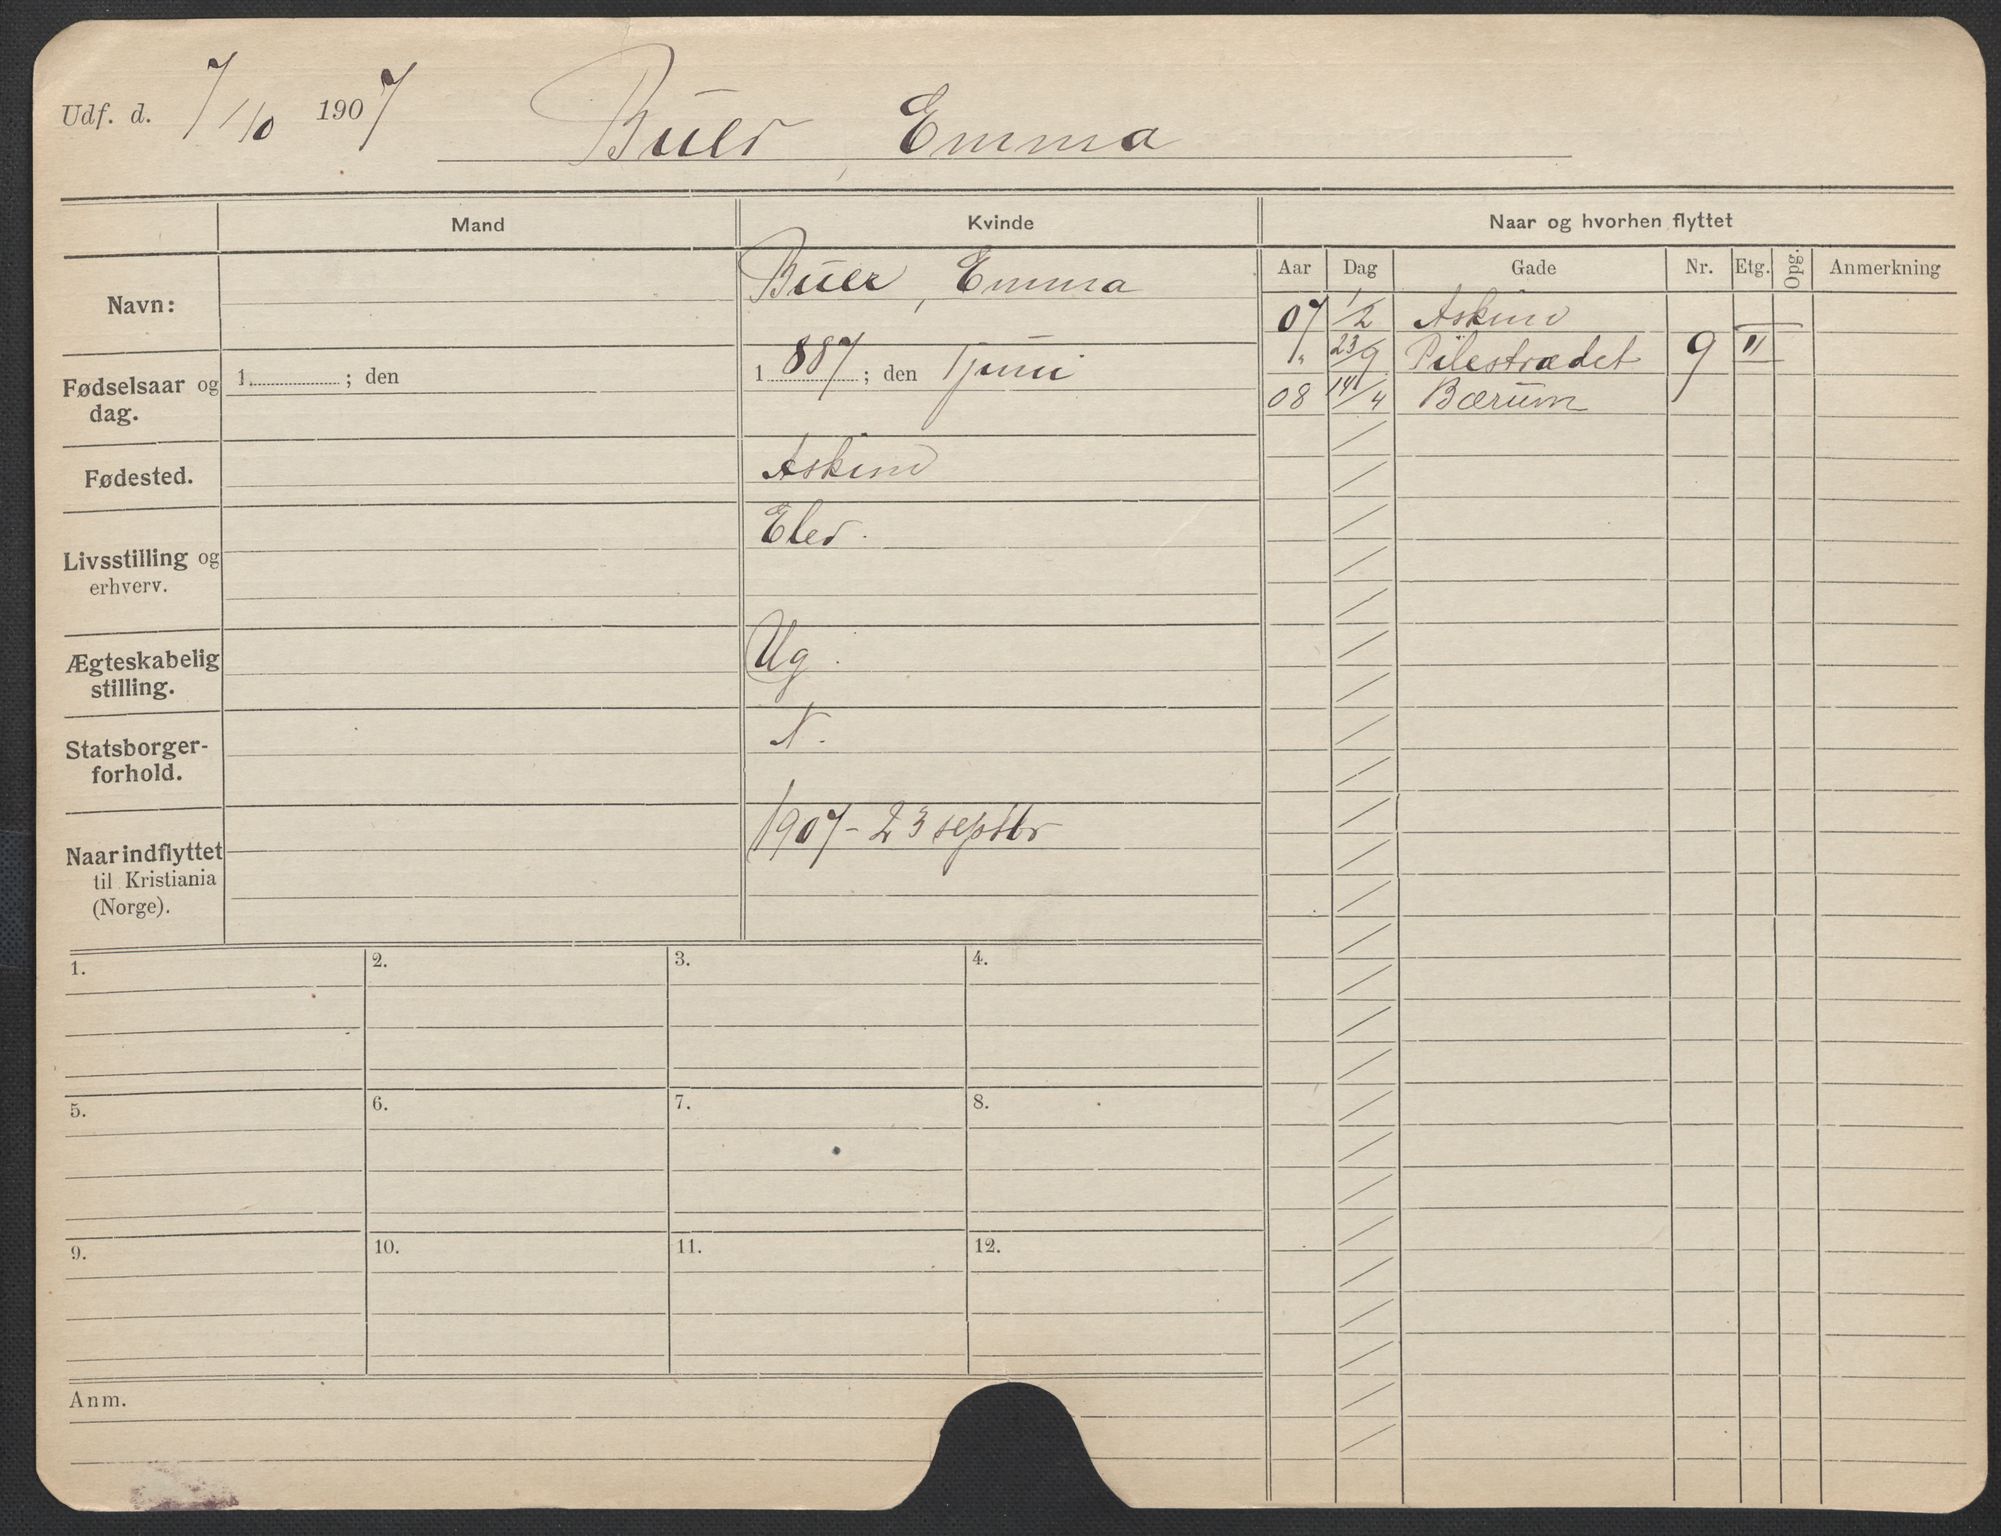 Udf. d. 7/10 1907 Buer, Emma
Mand
Kvinde
Naar og hvorhen flyttet
Navn:
Buer, Emma
Fødselsaar og dag.
1 ; den
1887; den 1 juni
Fødested.
Askim
Livsstilling og erhverv.
Elev.
Ægteskabelig stilling.
Ug.
Statsborger-
forhold.
N.
Naar indflyttet til Kristiania (Norge).
1907 - 23 septbr
Aar Dag Gade Nr. Etg. Opg. Anmerkning
07 1/2 Askim
" 23/9 Pilestrædet 9 II
08 14/4 Bærum
1. 2. 3. 4.
5. 6. 7. 8.
9. 10. 11. 12.
Anm.